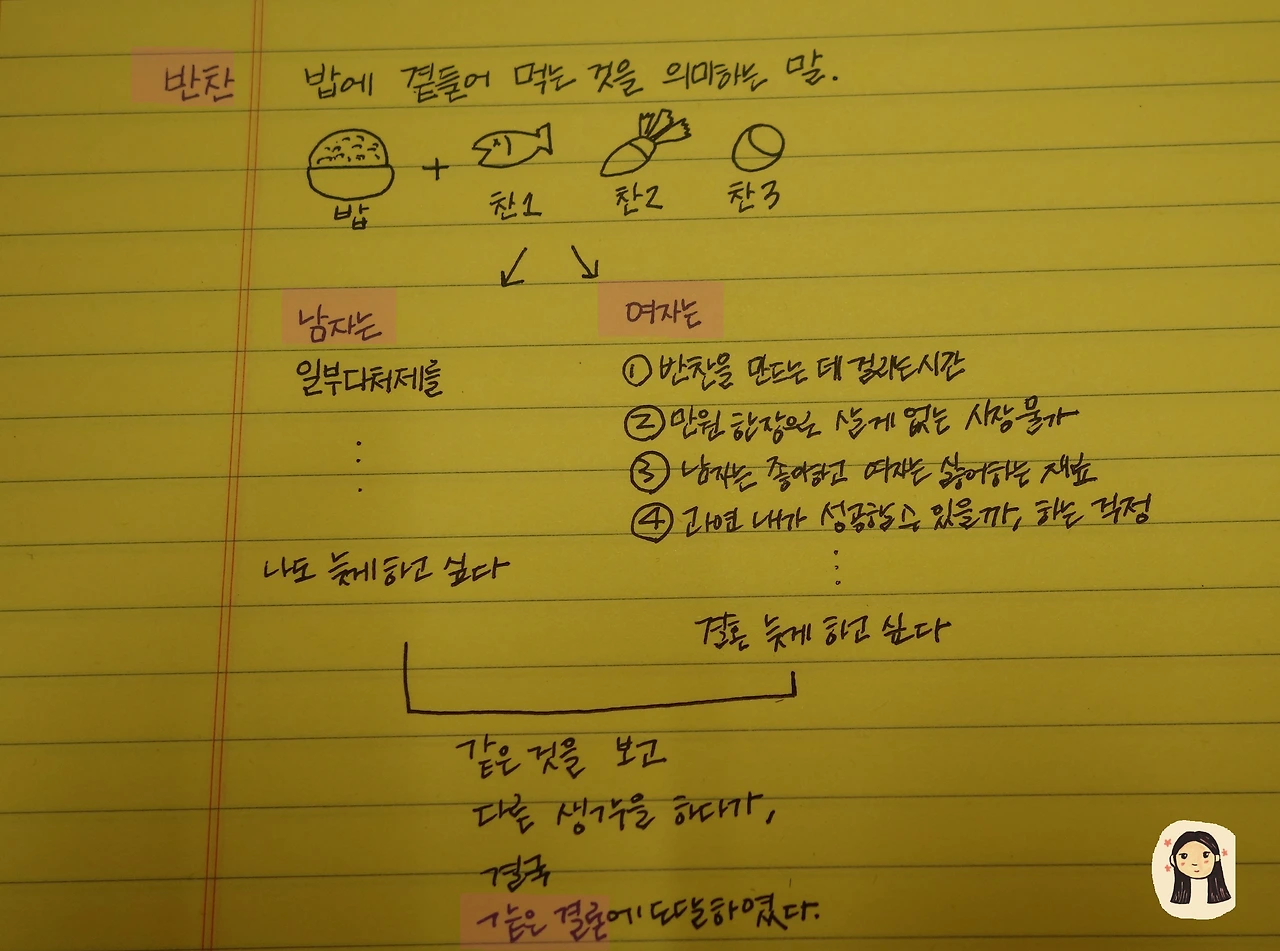 반찬 밥에 곁들어 먹는 것을 의미하는 말.
밥 + 찬1 찬2 찬3
남자는
일부다처제를
나도 늦게 하고 싶다
여자는
① 반찬을 만드는 데 걸리는 시간
② 만원 한장으로 살게 없는 시장 물가
③ 남자는 좋아하고 여자는 싫어하는 재료
④ 과연 내가 성공할 수 있을까, 하는 걱정
결혼 늦게 하고 싶다
같은 것을 보고
다른 생각을 하다가,
결국
같은 결론에 도달하였다.